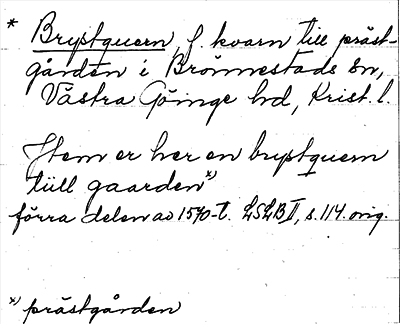 * Brystquern, f. kvarn till präst-
gården i Brönnestads sn,
Västra Göinge hd, Krist. l.
Item er her en brystquern
tiill gaarden*)
förra delen av 1570-t. LSLB II, s. 114. orig.
*) prästgården